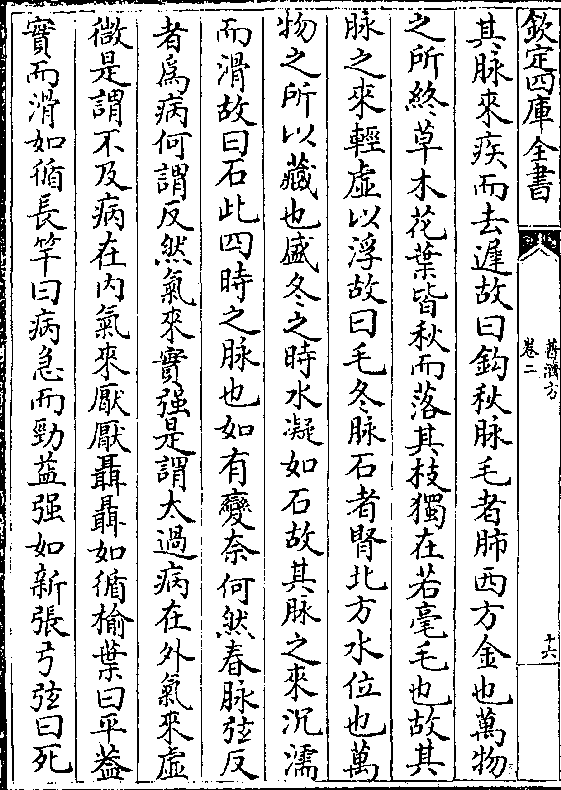 欽定四庫全書
普濟方
卷二
十六
其脉來疾而去遲故曰鈎秋脉毛者肺西方金也萬物
之所終草木花葉皆秋而落其枝獨在若毫毛也故其
脉之來輕虚以浮故曰毛冬脉石者腎北方水位也萬
物之所以藏也盛冬之時水凝如石故其脉之來沉濡
而滑故曰石此四時之脉也如有變奈何然春脉弦反
者為病何謂反然氣來實强是謂太過病在外氣來虚
微是謂不及病在内氣來厭厭聶聶如循榆葉曰平益
實而滑如循長竿曰病急而勁益强如新張弓弦曰死